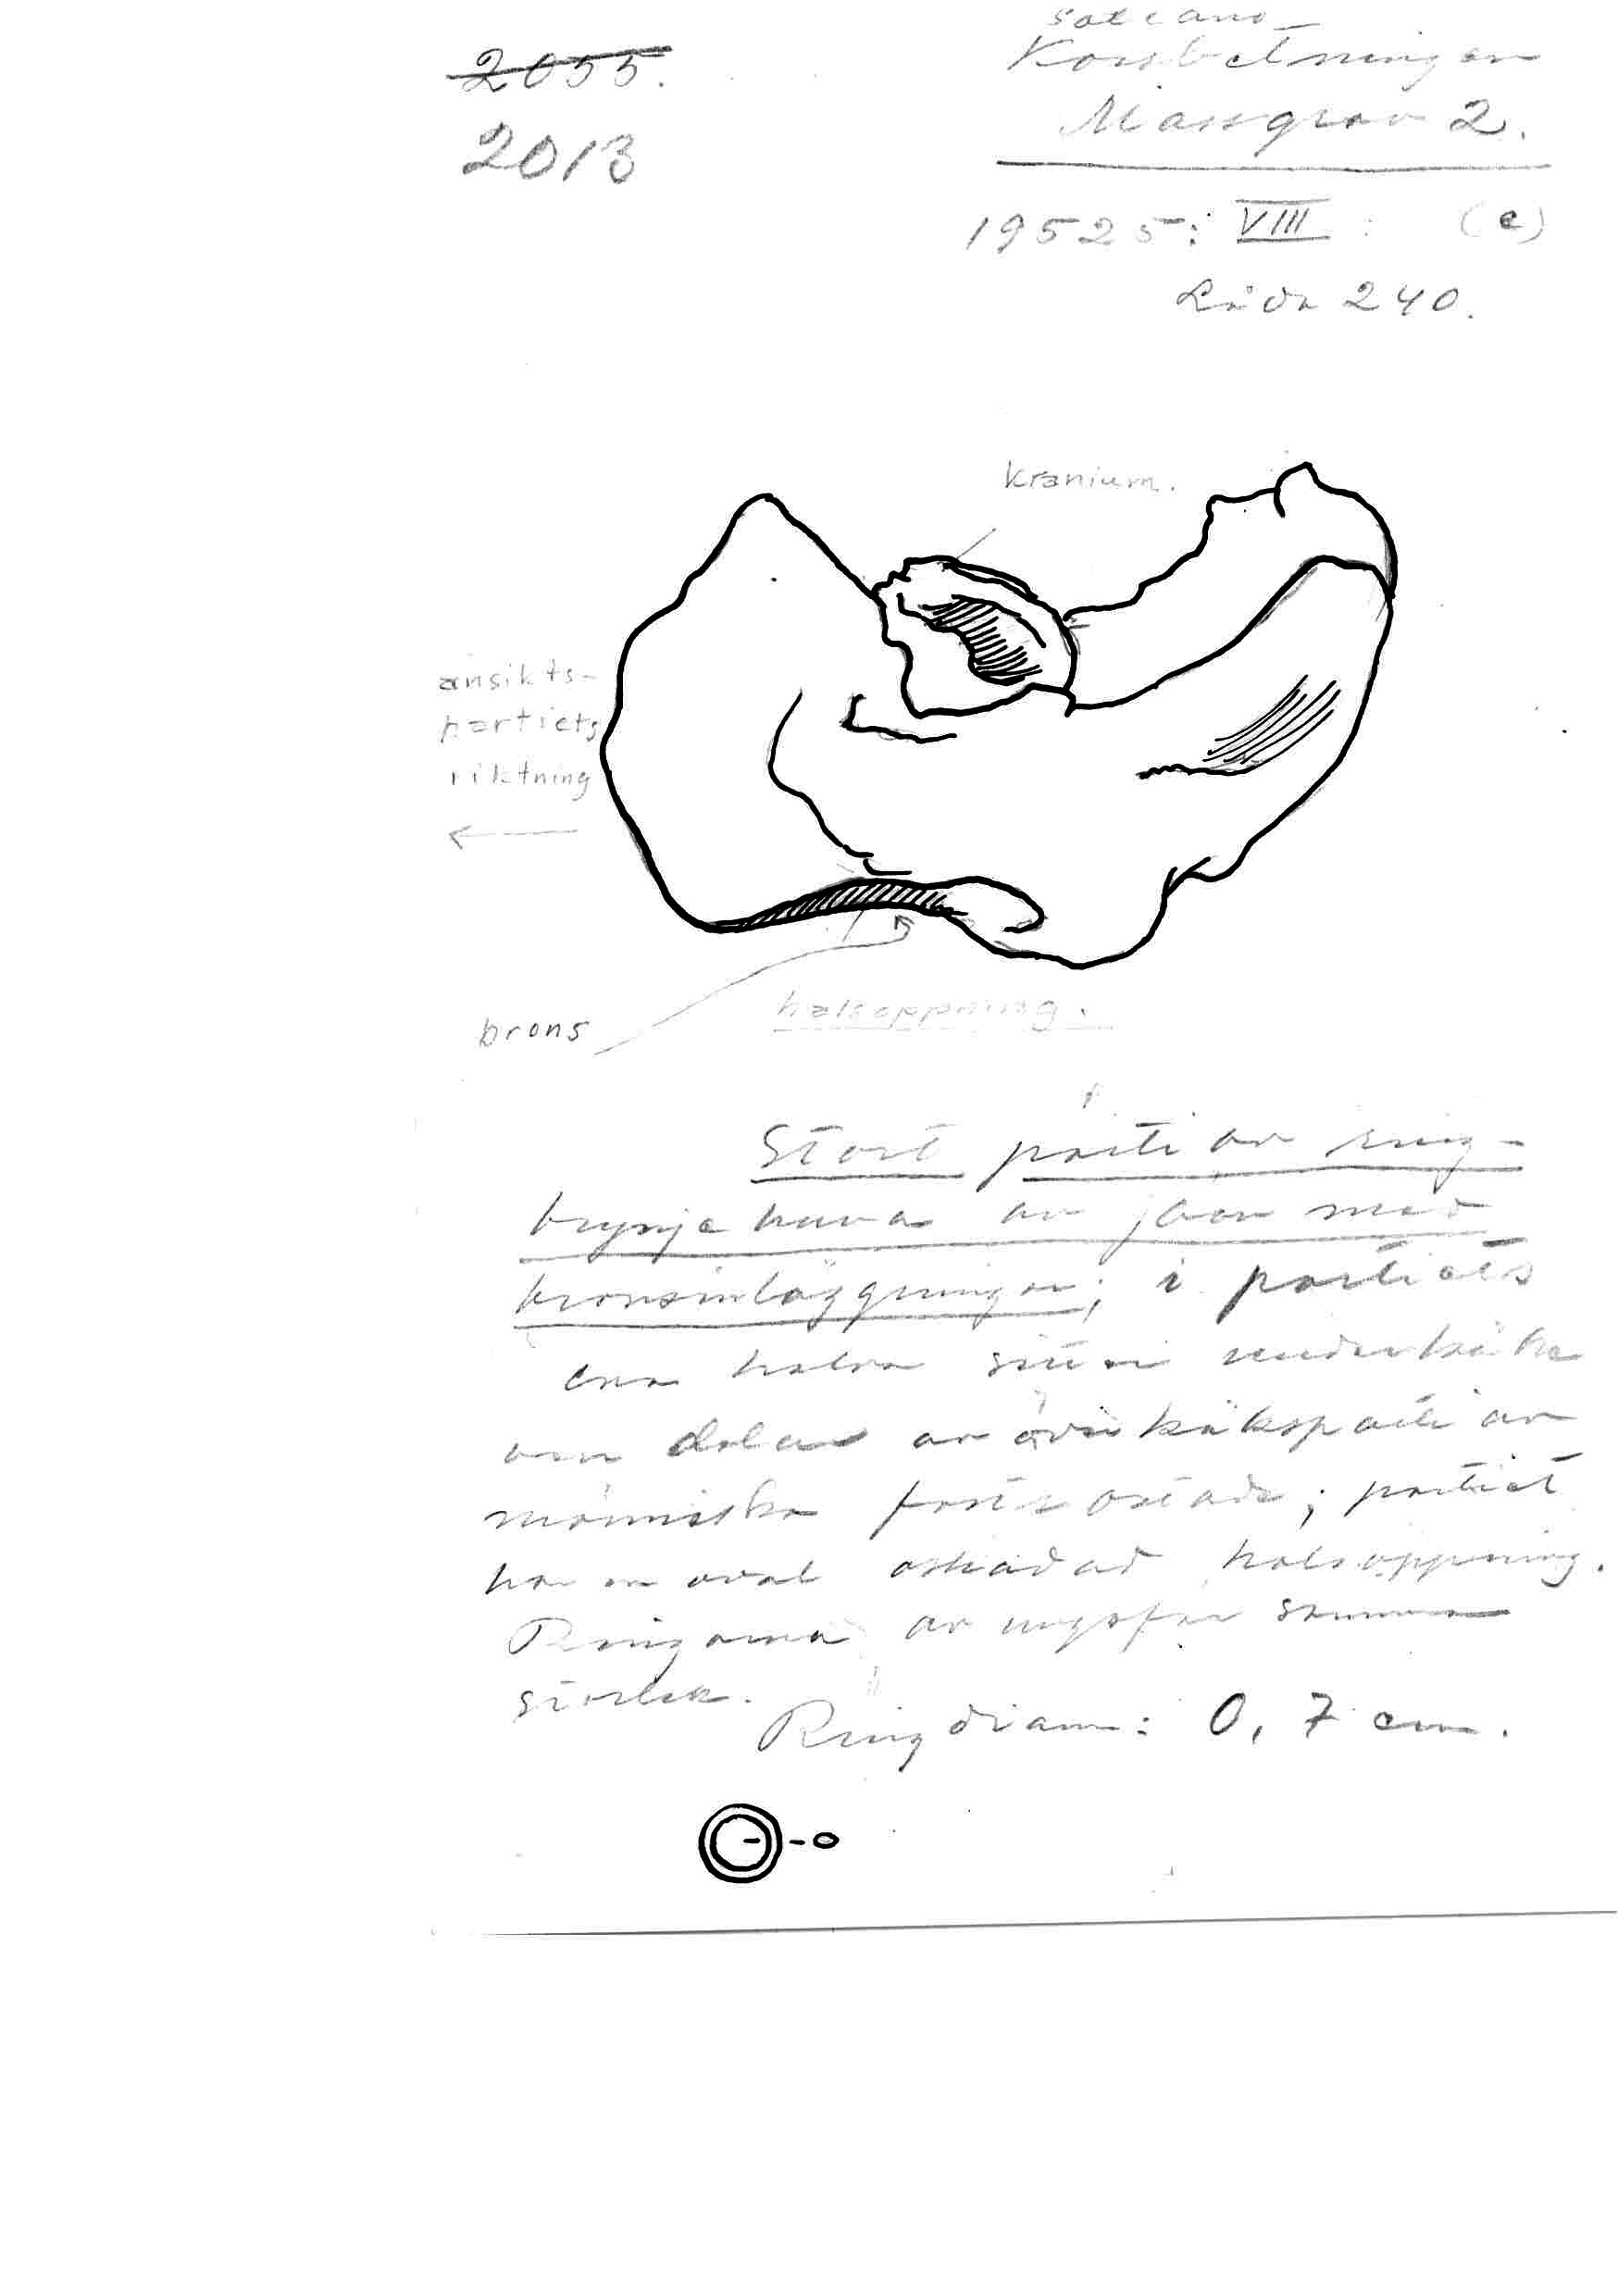 2055.
2013
Korsbetningen
Massgrav 2.
19525: VIII : (c)
Låda 240.
kranium.
ansikts-
partiets
riktning
brons
halsöppning.
Stort parti av ring-
brynjehuva av järn med
bronsinläggningar; i partiets
ena halva sitter underkäke
och delar av överkäksparti av
människa fastrostade; partiet
har en oval oskadad halsöppning.
Ringarna av ungefär samma
storlek.
Ringdiam: 0,7 cm.